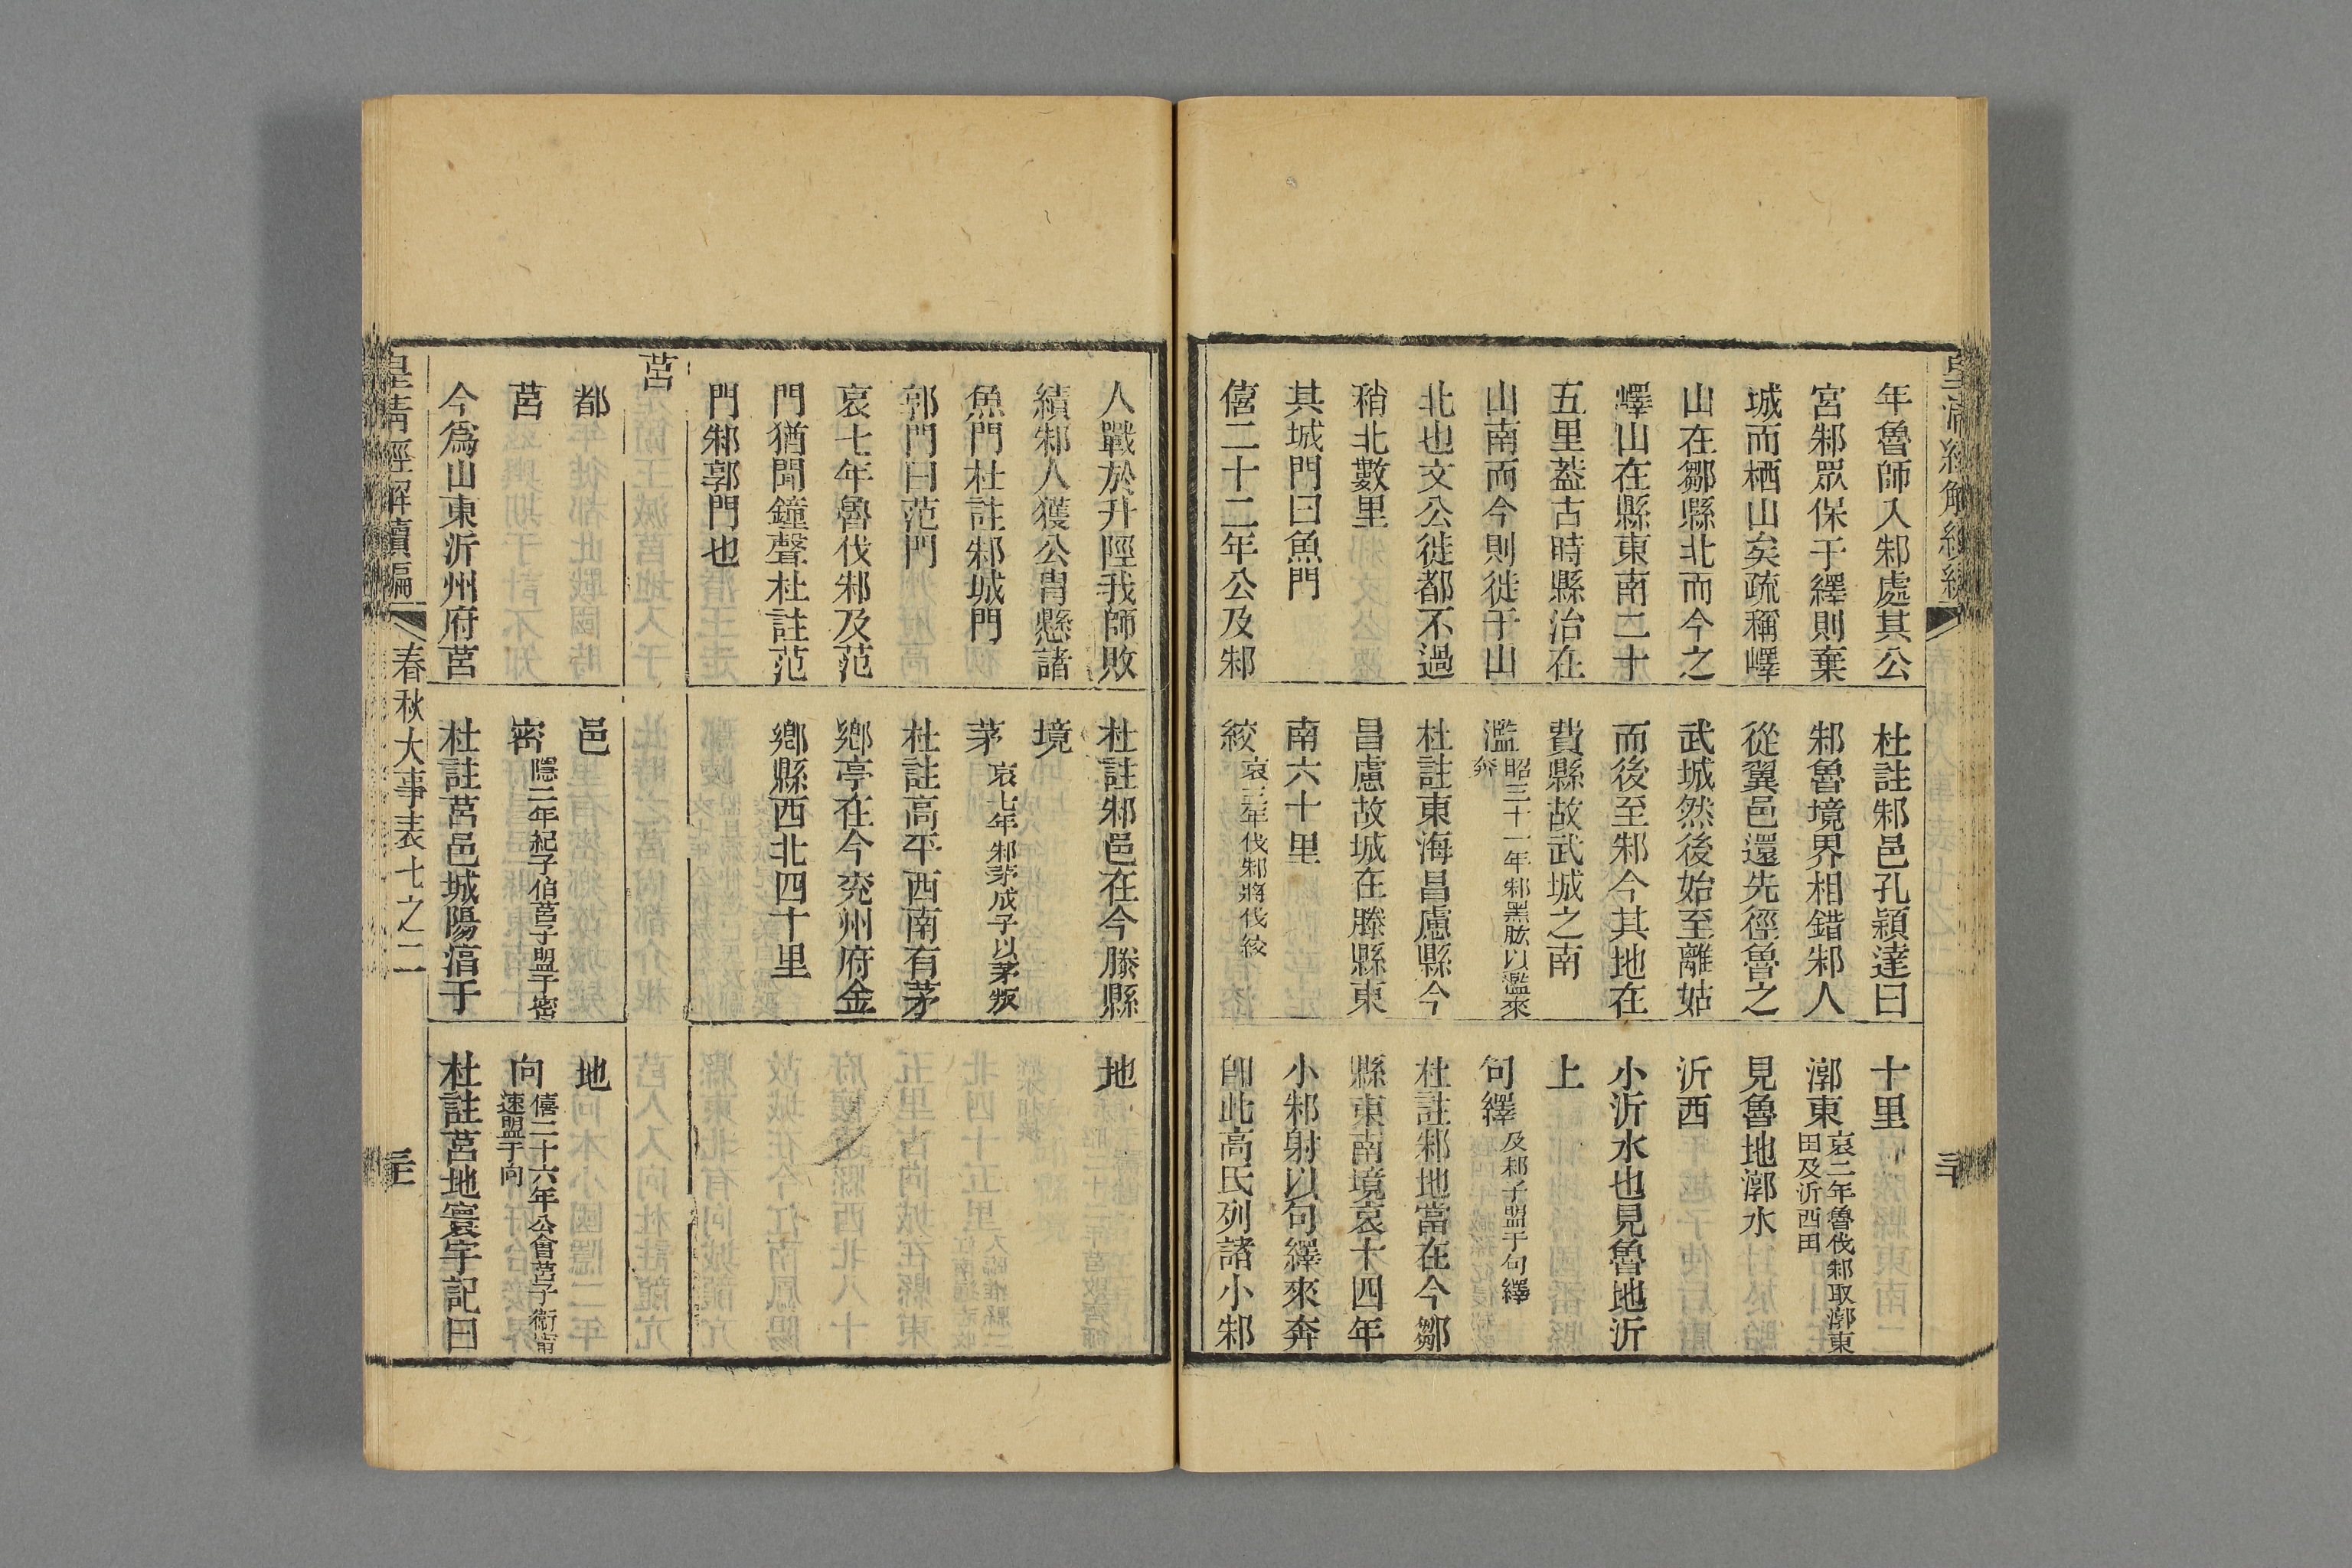 年魯師入邾處其公
宮邾眾保于繹則棄
城而栖山矣疏稱嶧
山在鄒縣北而今之
嶧山在縣東南二十
五里葢古時縣治在
山南而今則徙于山
北也文公徙都不過
稍北數里
其城門曰魚門
僖二十二年公及邾
杜註邾邑孔穎達曰
邾魯境界相錯邾人
從翼邑還先徑魯之
武城然後始至離姑
而後至邾今其地在
費縣故武城之南
濫昭三十一年邾黑肱以濫來
奔
杜註東海昌慮縣今
昌慮故城在滕縣東
南六十里
絞哀二年伐邾將伐絞
十里
漷東哀二年魯伐邾取漷東
田及沂西田
見魯地漷水
沂西
小沂水也見魯地沂
上
句繹及邾子盟于句繹
杜註邾地當在今鄒
縣東南境哀十四年
小邾射以句繹來奔
卽此高氏列諸小邾
人戰於升陘我師敗
績邾人獲公冑懸諸
魚門杜註邾城門
郭門曰范門
哀七年魯伐邾及范
門猶聞鐘聲杜註范
門邾郭門也
杜註邾邑在今滕縣
境
茅哀七年邾茅成子以茅叛
杜註高平西南有茅
鄉亭在今兖州府金
鄉縣西北四十里
地
莒
都
莒
今爲山東沂州府莒
邑
密隱二年紀子伯莒子盟于密
杜註莒邑城陽淳于
地
向僖二十六年公會莒子衛甯
速盟于向
杜註莒地寰宇記曰
皇淸經解續編
春秋大事表七之二